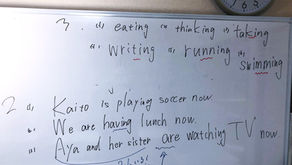 3. (1) eating (2) thinking (3) taking
(4) writing (5) running (6) swimming
2 (1) Kaito is playing soccer now.
(2) We are having lunch now.
(3) Aya and her sister are watching TV now